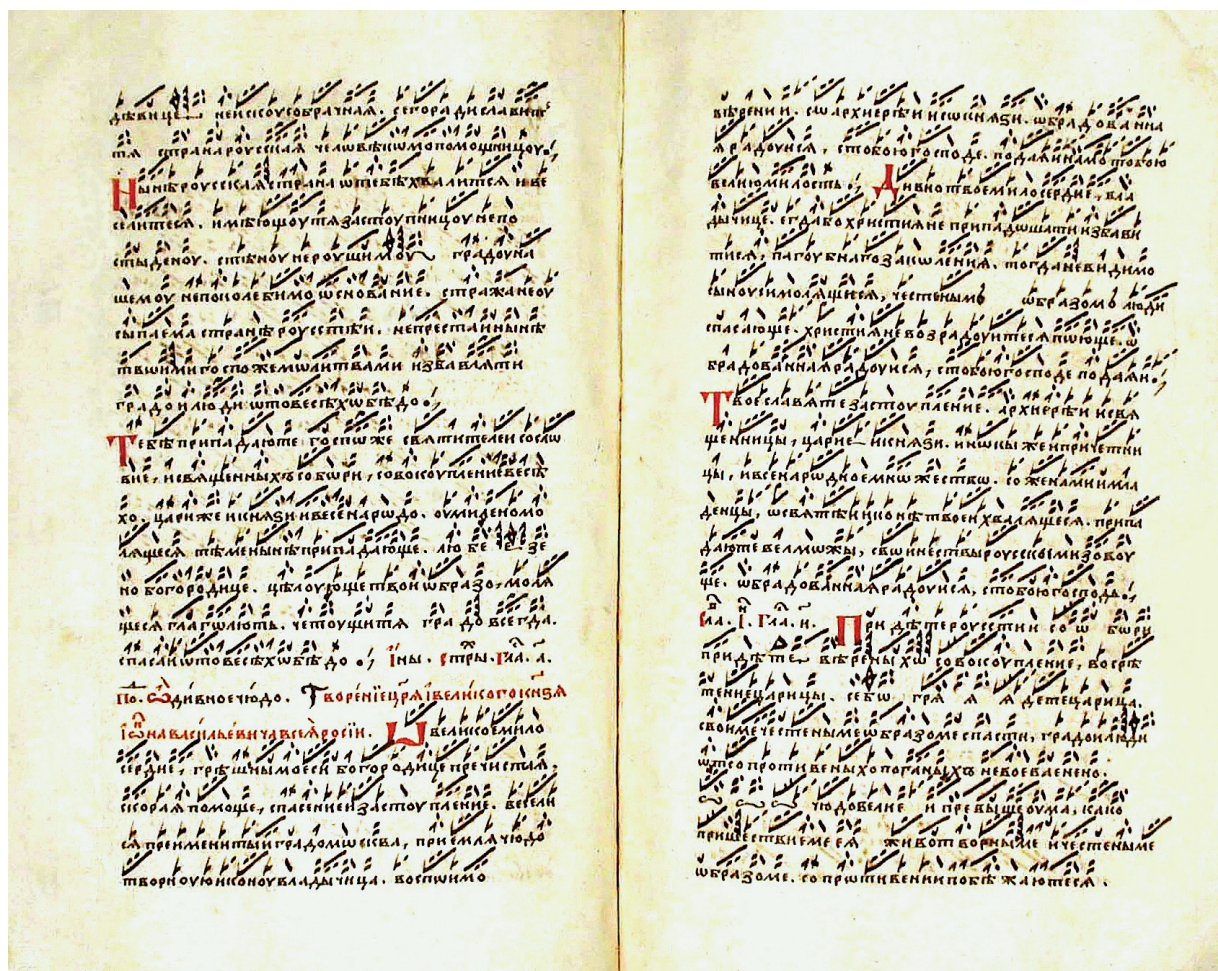 дѣвице неискоусобрачная. сегоради славите
тя странароусская человѣкомо помощницоу.
Нынѣ роусская страна ѡтебѣ хвалится иве
селитеся. имѣющоутя застоупницоу непо
стыденоу. стѣноу нероушимоу градоу на
шемоу непоколебимо ѡснование. стражанеоу
сыпаема странѣ роусстѣи. непрестаи нынѣ
твоими госпоже молитвами избавляти
градо и люди ѿовесѣхѡ бѣдо.
Тебѣ припадаюте госпѡже святителеи сосло
вие, исвященныхъ соборѡ, совокоупление весѣ
хо. цариже и князи ивесенародо. оумиленомо
лящеся тѣме нынѣ припадающе. любезе
но богородице. цѣлоующе твои ѡбразо, моля
щеся глаголють. чтоущитя градо всегда.
спасаи ѿовесѣхѡ бѣдо. ины. стры. гла. а.
По. Ѽ дивное чюдо. Творение цря івеликогокнѕя
іѡ̑на васильевича всея росїи. Ѡ велико емило
сердие, грѣшнымо еси богородице пречистая.
скорая помоще, спасение изастоупление. весели
ся преименитыи градо мосӄва, приемля чюдо
творноую иконоу владычица. воспоимо
вѣрении. соархиерѣи исокнязи. ѡбрадованна
я радоуися, стобою господе. подаяи намо тобою
велию милость. Дивно твое милосердие, вла
дычице. егдабо християне припадоша ти избави
тися, пагоубнаго заколения. тогда невидимо
сыноуси молящися, честенымъ ѡбразомъ люди
спасающе. християне возрадоуитеся поюще. ѡ
брадованная радоуися, стобою господе подаяи.
Твое славяте застоупление. архиерѣи исвя
щенницы, царие и князи. инокы же ипричетни
цы, ивсенародное множество. соженами имла
денцы, ѡсвятѣи иконѣ твоеи хвалящеся. припа
даюте велможы, своинествы роусскоими зовоу
ще. ѡбрадованная радоуися, стобою господь.
сла. і. гла. и. Придѣте роусстии собори
придѣте вѣреныхъ совокоупление, восрѣ
тение царицы. себо грядете царица.
своиме честеныме ѡбразоме спасти, градо и люди
ѿсопротивеныхо поганыхъ невоеваенено.
чюдо велие и превыше оума, како
пришествиеме ея животворныме ичестеныме
ѡбразоме. сопротивении побѣжаютеся.